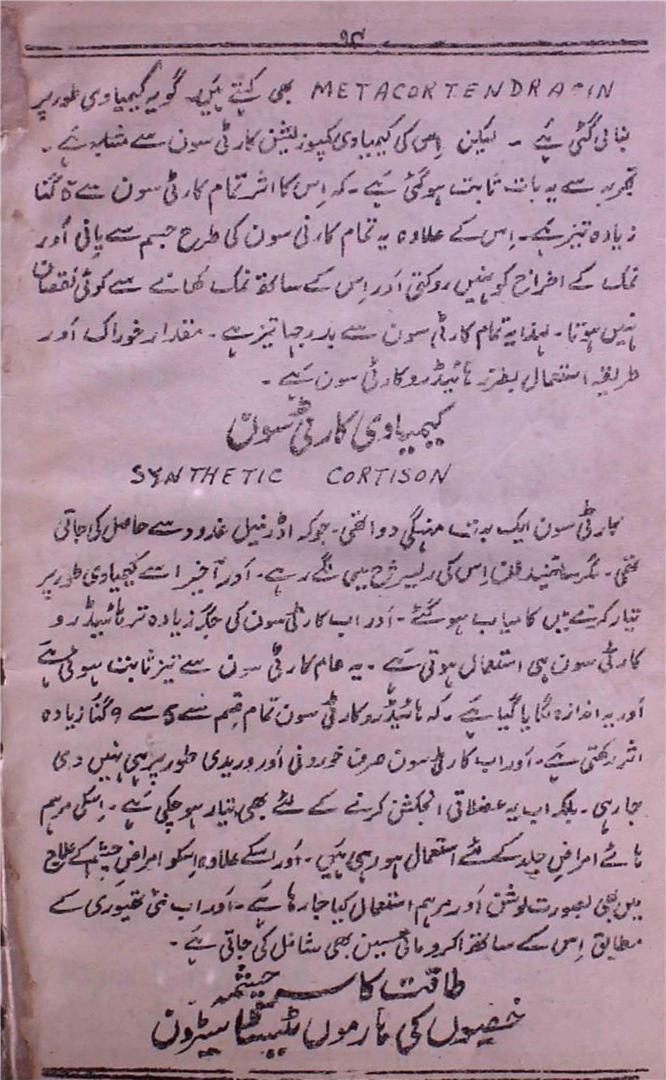 ۹۴
METACORTENDRACIN بھی کہتے ہیں۔ گویہ کیمیاوی طور پر
بنائی گئی ہے ۔ لیکن اِس کی کیمیاوی کمپوزیشن کارٹی سون سے مشابہ ہے ۔
تجربہ سے یہ بات ثابت ہوگئی ہے ۔ کہ اِس کا اثر تمام کارٹی سون سے 5 گنا
زیادہ تیز ہے۔ اِس کے علاوہ یہ تمام کارٹی سون کی طرح جسم سے پانی اَور
نمک کے اخراج کو نہیں روکتی اَور اِس کے ساتھ نمک کھانے سے کوئی نقصان
نہیں ہوتا ۔ لہذا یہ تمام کارٹی سون سے بدرجہا تیز ہے ۔ مقدار خوراک اَور
طریقہ استعمال بطرز ہائیڈروکارٹی سون ہے ۔
کیمیاوی کارٹی سون
SYNTHETIC CORTISON
کارٹی سون ایک بہت مہنگی دوا تھی ۔ جوکہ اڈرنیل غدود سے حاصل کی جاتی
تھی ۔ مگر سائنسدان اِس کی ریسرچ میں لگے رہے ۔ اَور آخر اسے کیمیاوی طور پر
تیار کرنے میں کامیاب ہوگئے ۔ اَور اب کارٹی سون کی جگہ زیادہ تر ہائیڈرو
کارٹی سون ہی استعمال ہوتی ہے ۔ یہ عام کارٹی سون سے تیز ثابت ہوئی ہے
اَور یہ اندازہ لگایا گیا ہے ۔ کہ ہائیڈروکارٹی سون تمام قسم سے 5 سے 9 گنا زیادہ
اثر رکھتی ہے ۔ اَور اب کارٹی سون صرف خوردنی اَور وریدی طور پر ہی نہیں دی
جارہی ۔ بلکہ اب یہ عضلاتی انجکشن کرنے کے لئے بھی تیار ہوچکی ہے ۔ اِسکی مرہم
ہائے امراضِ جلد کے لئے استعمال ہورہی ہیں ۔ اَور اسکے علاوہ اِسکو امراضِ چشم کے علاج
میں بھی بصورت لوشن اَور مرہم استعمال کیا جارہا ہے ۔ اَور اب نئی تھیوری کے
مطابق اِس کے ساتھ اکرومائی سین بھی شامل کی جاتی ہے ۔
طاقت کا سرچشمہ
خصیوں کی ہارمون ٹیسٹاسیٹرون